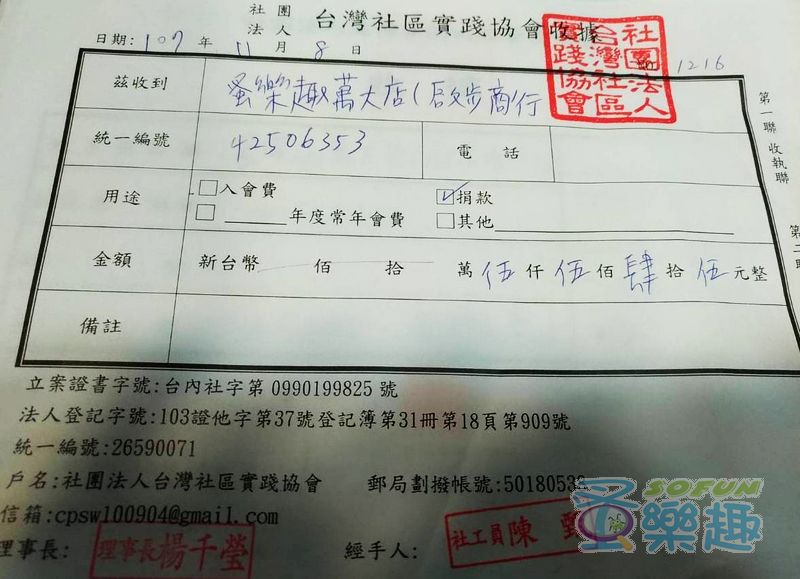 社團
法人 台灣社區實踐協會收據
日期:107年11月8日
1216
社團法人
台灣社區
實踐協會
茲收到 蚤樂趣萬大店(啟步商行
統一編號 42506353 電話
用途 □入會費 ☑捐款
□______年度常年會費 □其他
金額 新台幣 佰 拾 萬伍仟伍佰肆拾伍元整
備註
第一聯 收執聯
立案證書字號:台內社字第 0990199825 號
法人登記字號:103證他字第37號登記簿第31冊第18頁第909號
統一編號:26590071
戶名:社團法人台灣社區實踐協會 郵局劃撥帳號:5018053
信箱:cpsw100904@gmail.com
理事長: 理事長楊千瑩 經手人: 社工員陳
SOFUN
蚤樂趣